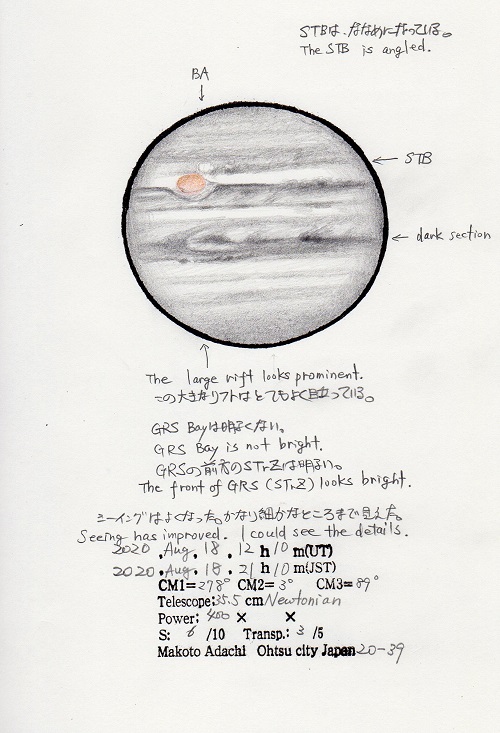 STBは、ななめになっている。
The STB is angled.
BA
STB
dark section
The large rift looks prominent.
この大きなリフトはとてもよく目立っている。
GRS Bayは明るくない。
GRS Bay is not bright.
GRSの前方のSTrZは明るい。
The front of GRS (STrZ) looks bright.
シーイングはよくなった。かなり細かなところまで見えた。
Seeing has improved. I could see the details.
2020. Aug. 18. 12 h 10 m(UT)
2020. Aug. 18. 21 h 10 m(JST)
CM1=278° CM2=3° CM3=89°
Telescope:35.5 cm Newtonian
Power: 400 × ×
S: 6 /10 Transp.: 3 /5
Makoto Adachi Ohtsu city Japan 20-39